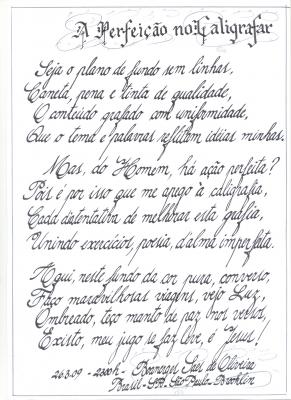 A Perfeição no Caligrafar
Seja o plano de fundo sem linhas,
Caneta, pena e tinta de qualidade,
O conteúdo grafado com uniformidade,
Que o tema e palavras reflitam idéias minhas.
Mas, do Homem, há ação perfeita?
Pois é por isso que me apego à caligrafia,
Cada tentativa de melhorar esta grafia,
Unindo exercícios, poesia, d'alma imperfeita.
Aqui, neste fundo da cor pura, converso,
Faço maravilhosas viagens, vejo Luz,
Ombreado, teço manto de paz nos versos,
Existo, meu jugo se faz leve, é Jesus!
26.3.09 - 2300h - Boanerges Saes de Oliveira
Brasil - SP - São Paulo - Brooklin